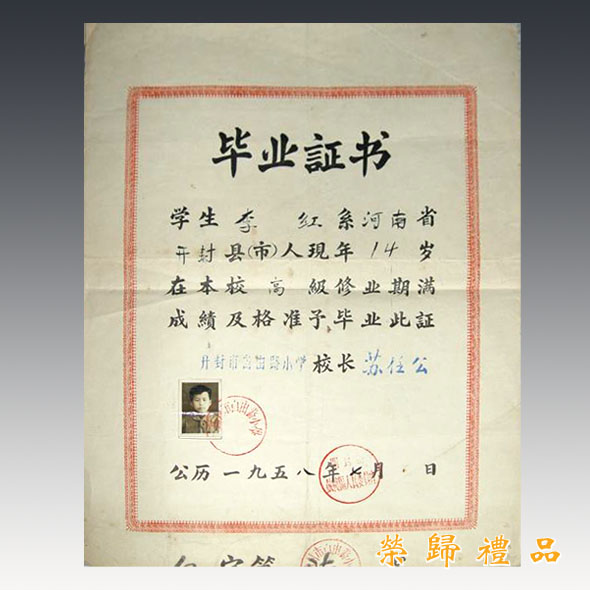 毕业証书
学生李 红系河南省
开封县(市)人现年14岁
在本校高級修业期满
成績及格准予毕业此証
开封市自由路小学 校长 苏任公
公历一九五八年七月 日
荣歸禮品